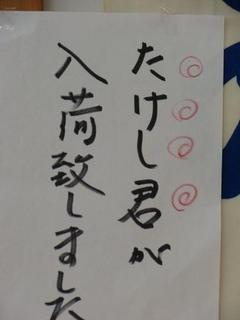 たけし君が
入荷致しました